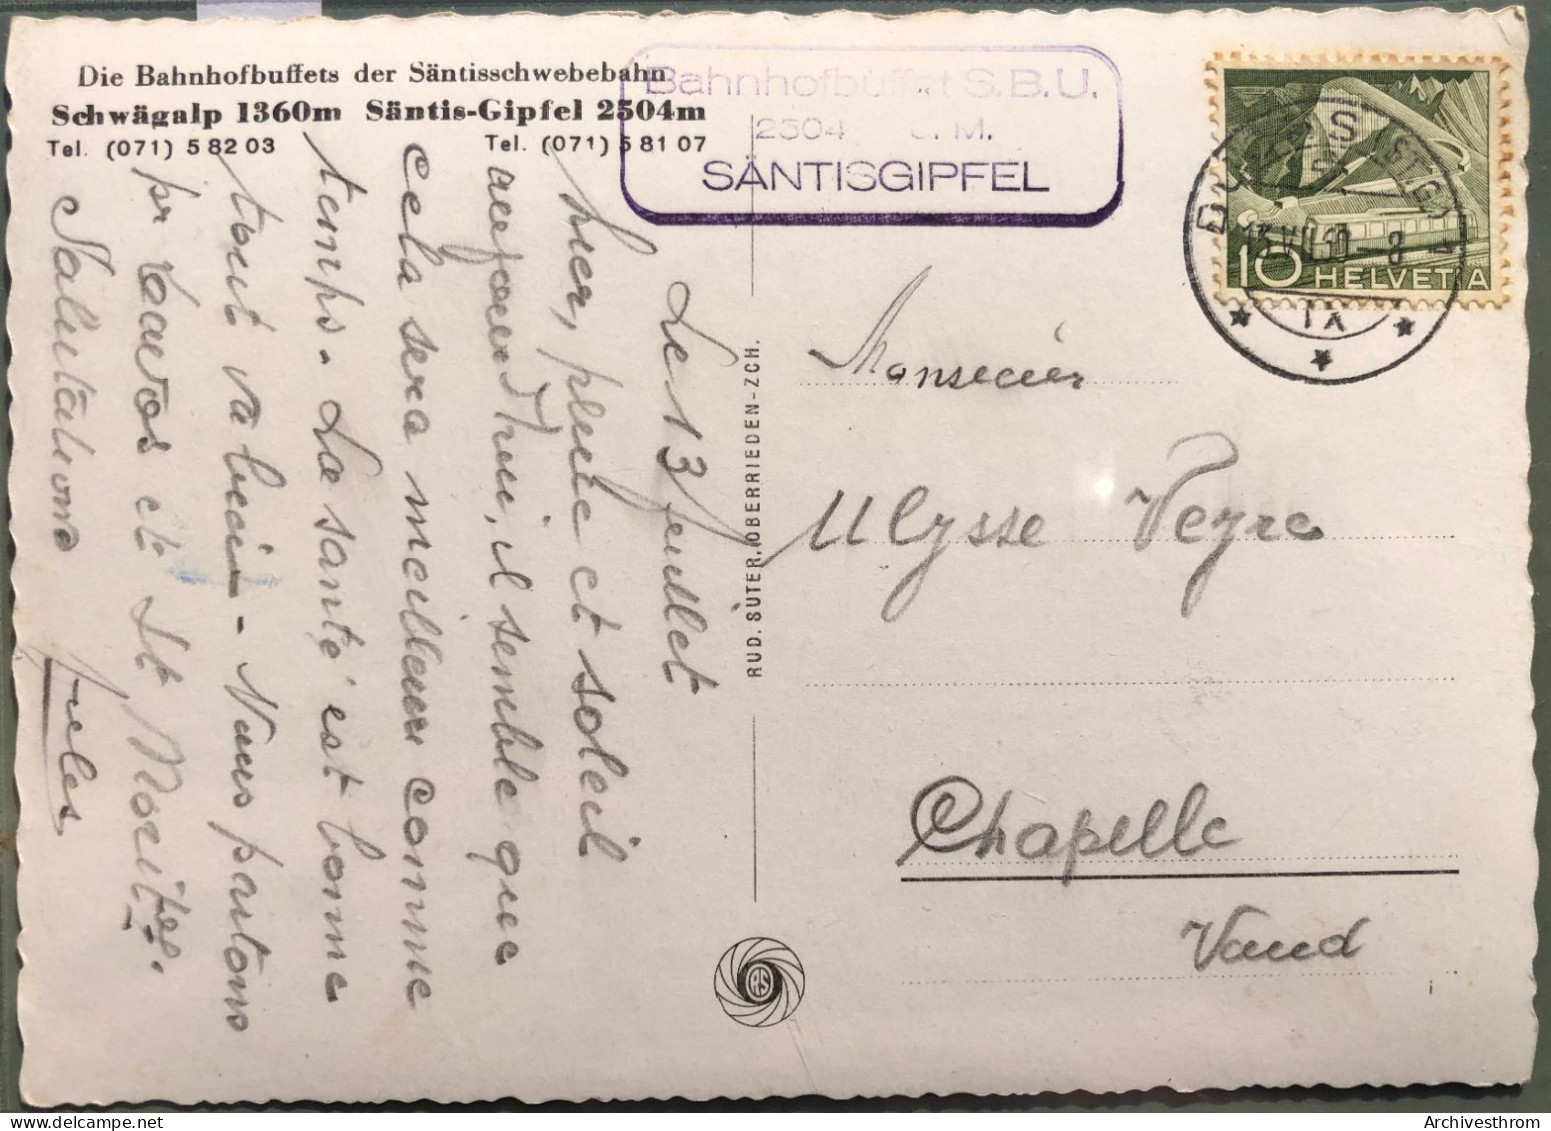 Die Bahnhofbuffets der Säntisschwebebahn
Schwägalp 1360m Säntis-Gipfel 2504m
Tel. (071) 5 82 03 Tel. (071) 5 81 07
Bahnhofbuffet S.B.U.
2504 M.
SÄNTISGIPFEL
13.VII.50-8
IX
10 HELVETIA
Le 13 Juillet
hier, pluie et soleil
aujourd'hui, il semble que
cela sera meilleur comme
temps. La santé est bonne
tout va bien - Nous partons
pr Davos et St Moritz.
Salutations
Jules
RUD. SUTER, OBERRIEDEN-ZCH.
RS
Monsieur
Ulysse Veyre
Chapelle
Vaud
Archivesthrom